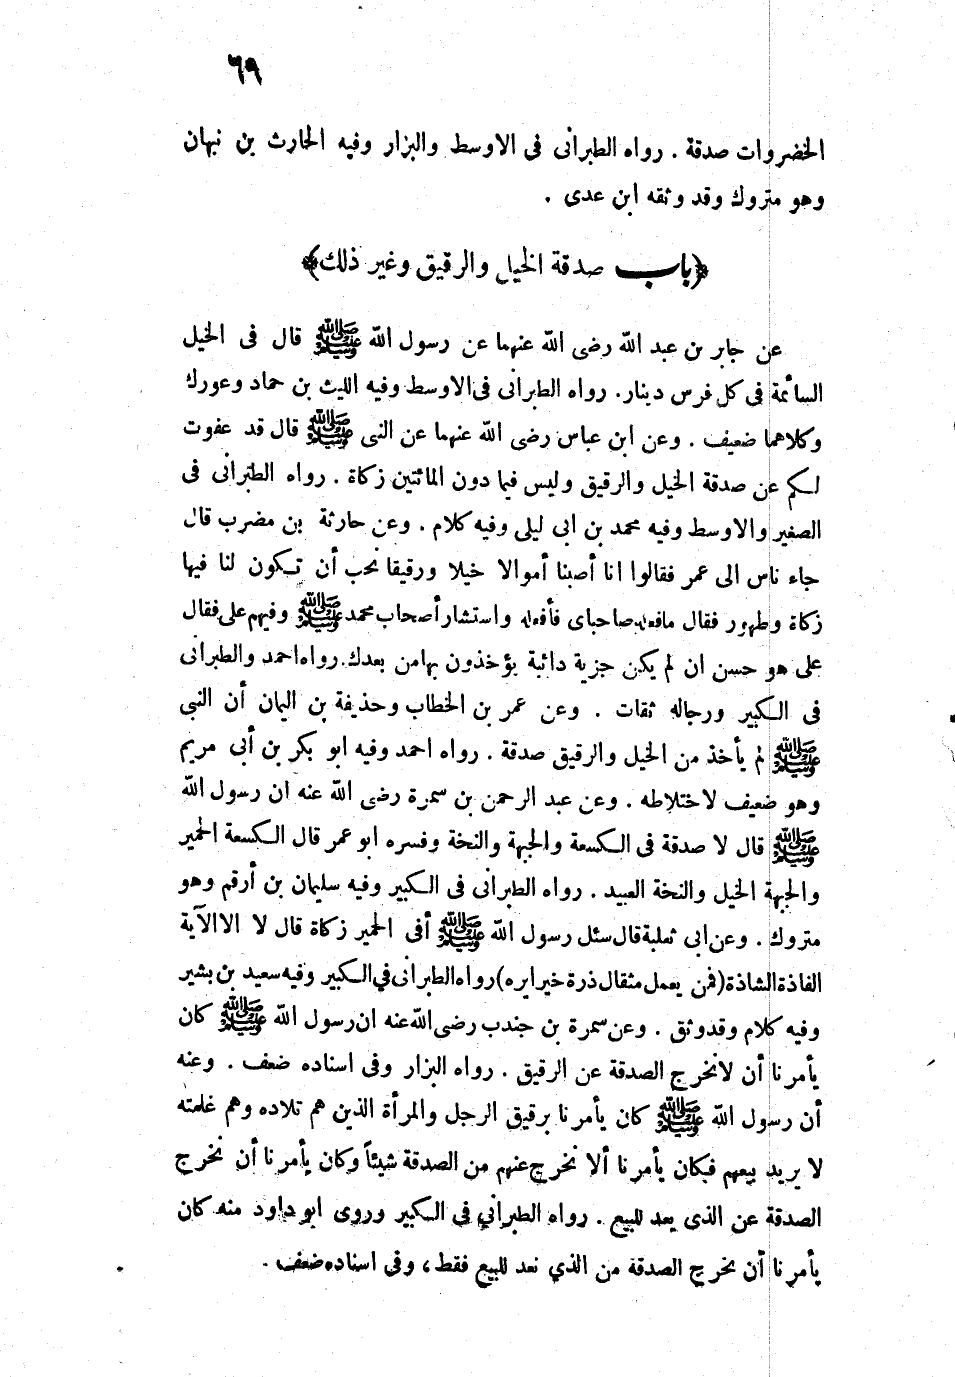 ٦٩
الخضروات صدقة . رواه الطبرانى فى الاوسط والبزار وفيه الحارث بن نبهان
وهو متروك وقد وثقه ابن عدى .
﴿باب صدقة الخيل والرقيق وغير ذلك﴾
عن جابر بن عبد الله رضى الله عنهما عن رسول الله ﷺ قال فى الخيل
السائمة فى كل فرس دينار. رواه الطبرانى فى الاوسط وفيه الليث بن حماد وعورك
وكلاهما ضعيف . وعن ابن عباس رضى الله عنهما عن النبى ﷺ قال قد عفوت
لكم عن صدقة الخيل والرقيق وليس فيما دون المائتين زكاة . رواه الطبرانى فى
الصغير والاوسط وفيه محمد بن ابى ليلى وفيه كلام . وعن حارثة بن مضرب قال
جاء ناس الى عمر فقالوا انا أصبنا أموالا خيلا ورقيقا نحب أن تكون لنا فيها
زكاة وطهور فقال مافعله صاحباى فأفعله واستشار أصحاب محمد ﷺ وفيهم على فقال
على هو حسن ان لم يكن جزية دائبة يؤخذون بهامن بعدك. رواه احمد والطبرانى
فى الكبير ورجاله ثقات . وعن عمر بن الخطاب وحذيفة بن اليمان أن النبى
ﷺ لم يأخذ من الخيل والرقيق صدقة . رواه احمد وفيه ابو بكر بن أبى مريم
وهو ضعيف لاختلاطه . وعن عبد الرحمن بن سمرة رضى الله عنه ان رسول الله
ﷺ قال لا صدقة فى الكسعة والجبهة والنخة وفسره ابو عمر قال الكسعة الحمير
والجبهة الخيل والنخة العبيد . رواه الطبرانى فى الكبير وفيه سليمان بن أرقم وهو
متروك . وعن ابى ثعلبة قال سئل رسول الله ﷺ أفى الحمير زكاة قال لا الا الآية
الفاذة الشاذة (فمن يعمل مثقال ذرة خيرا يره) رواه الطبرانى في الكبير وفيه سعيد بن بشير
وفيه كلام وقدوثق . وعن سمرة بن جندب رضى الله عنه ان رسول الله ﷺ كان
يأمرنا أن لانخرج الصدقة عن الرقيق . رواه البزار وفى اسناده ضعف . وعنه
أن رسول الله ﷺ كان يأمرنا برقيق الرجل والمرأة الذين هم تلاده وهم غلمته
لا يريد بيعهم فكان يأمرنا ألا نخرج عنهم من الصدقة شيئاً وكان يأمرنا أن نخرج
الصدقة عن الذى يعد للبيع . رواه الطبراني في الكبير وروى ابو داود منه كان
يأمرنا أن نخرج الصدقة من الذي نعد للبيع فقط، وفى اسناده ضعف .